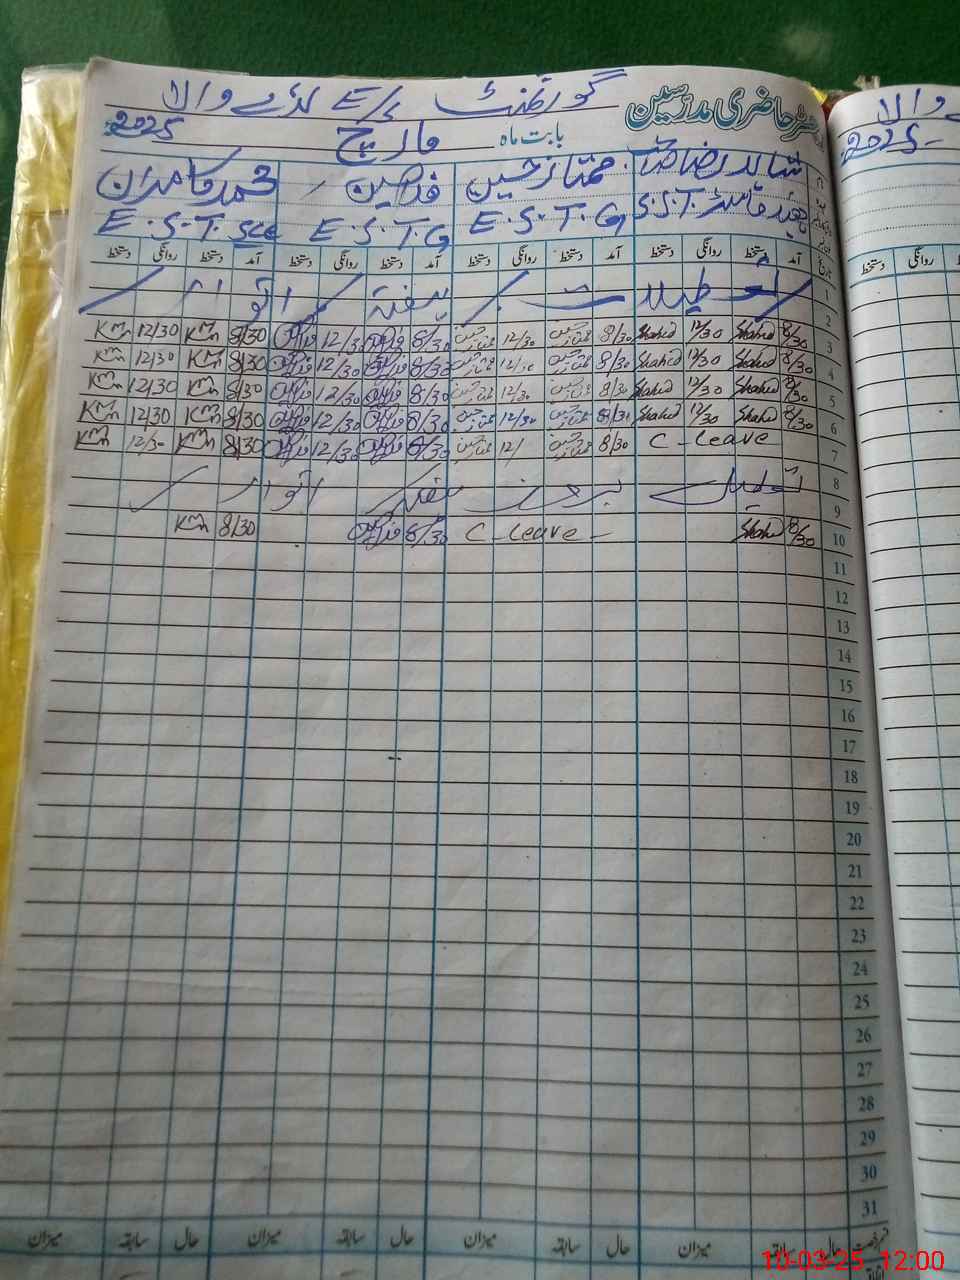 گورنمنٹ E/S لڈے والا
رجسٹر حاضری مدرسین
بابت ماہ مارچ 2025
شاہد رضا ممتاز حسین فدا حسین محمد کامران
S.S.T. E.S.T.G E.S.T.G E.S.T. Sce
آمد دستخط روانگی دستخط آمد دستخط روانگی دستخط آمد دستخط روانگی دستخط آمد دستخط روانگی دستخط
1 تعطیلات ہفتہ اتوار
2
3 8/30 Shahid 12/30 Shahid 8/30 ممتاز حسین 12/30 ممتاز حسین 8/30 12/30 8/30 Km 12/30 Km
4 8/30 Shahid 12/30 Shahid 8/30 ممتاز حسین 12/30 ممتاز حسین 8/30 12/30 8/30 Km 12/30 Km
5 8/30 Shahid 12/30 Shahid 8/30 ممتاز حسین 12/30 ممتاز حسین 8/30 12/30 8/30 Km 12/30 Km
6 8/30 Shahid 12/30 Shahid 8/30 ممتاز حسین 12/30 ممتاز حسین 8/30 12/30 8/30 Km 12/30 Km
7 C-Leave 8/30 ممتاز حسین 12/ ممتاز حسین 8/30 12/30 8/30 Km 12/30 Km
8 تعطیل بروز ہفتہ اتوار
9
10 8/30 Shahid C-Leave- 8/30 8/30 Km
11
12
13
14
15
16
17
18
19
20
21
22
23
24
25
26
27
28
29
30
31
حال سابقہ میزان حال سابقہ میزان حال سابقہ میزان حال سابقہ میزان
والا
2025-
دستخط روانگی
10-03-25 12:00